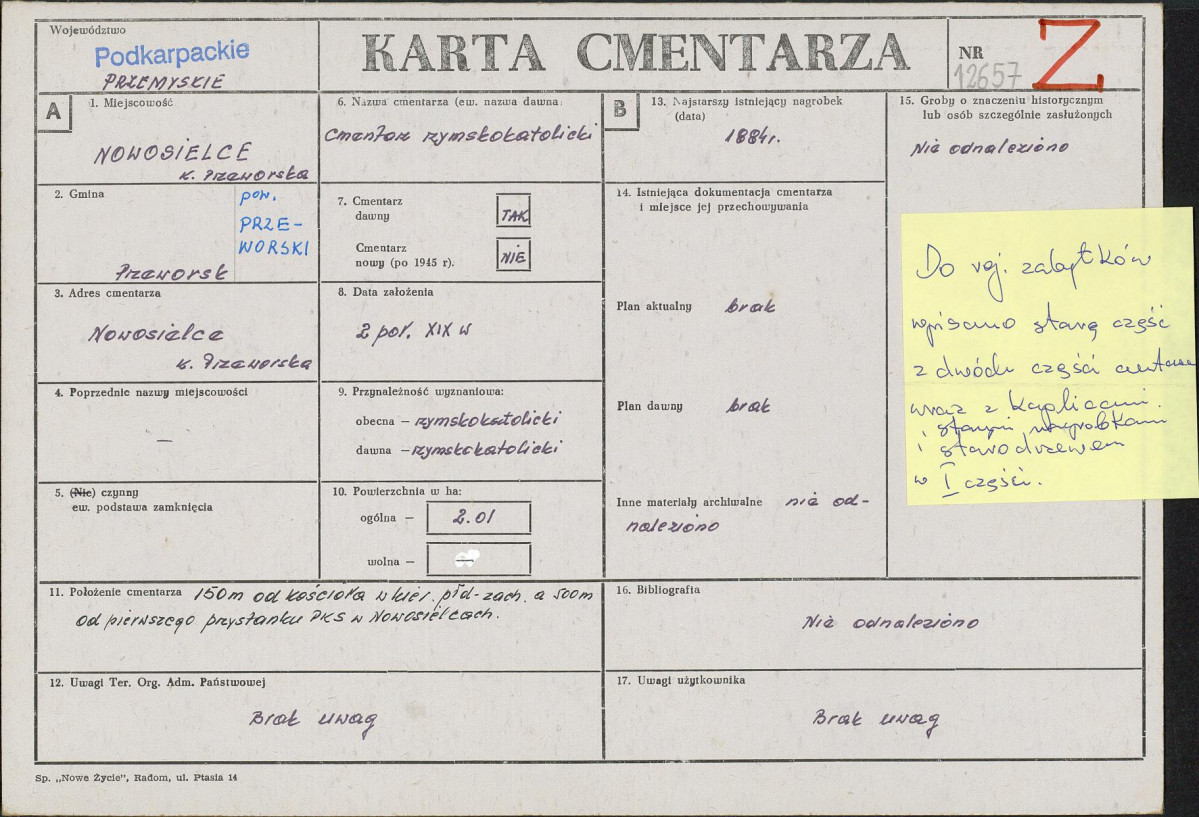 Województwo
Podkarpackie
PRZEMYSKIE
KARTA CMENTARZA
NR
12657
Z
A
1. Miejscowość
NOWOSIELCE
k. Przeworska
2. Gmina
pow.
PRZE-
WORSKI
Przeworsk
3. Adres cmentarza
Nowosielce
k. Przeworska
4. Poprzednie nazwy miejscowości
—
5. (Nie) czynny
ew. podstawa zamknięcia
6. Nazwa cmentarza (ew. nazwa dawna)
Cmentarz rzymskokatolicki
7. Cmentarz
dawny
TAK
Cmentarz
nowy (po 1945 r).
NIE
8. Data założenia
2 poł. XIX w
9. Przynależność wyznaniowa:
obecna — rzymskokatolicki
dawna — rzymskokatolicki
10. Powierzchnia w ha:
ogólna — 2.01
wolna — —
11. Położenie cmentarza 150m od kościoła w kier. płd-zach. a 500m
od pierwszego przystanku PKS w Nowosielcach.
12. Uwagi Ter. Org. Adm. Państwowej
Brak uwag
B
13. Najstarszy istniejący nagrobek
(data)
1884r.
14. Istniejąca dokumentacja cmentarza
i miejsce jej przechowywania
Plan aktualny brak
Plan dawny brak
Inne materiały archiwalne nie od-
naleziono
15. Groby o znaczeniu historycznym
lub osób szczególnie zasłużonych
Nie odnaleziono
Do rej. zabytków
wpisano starą część
z dwóch części
wraz z kaplicami.
starymi nagrobkami
i starodrzewem
w I części.
16. Bibliografia
Nie odnaleziono
17. Uwagi użytkownika
Brak uwag
Sp. „Nowe Życie”, Radom, ul. Ptasia 14